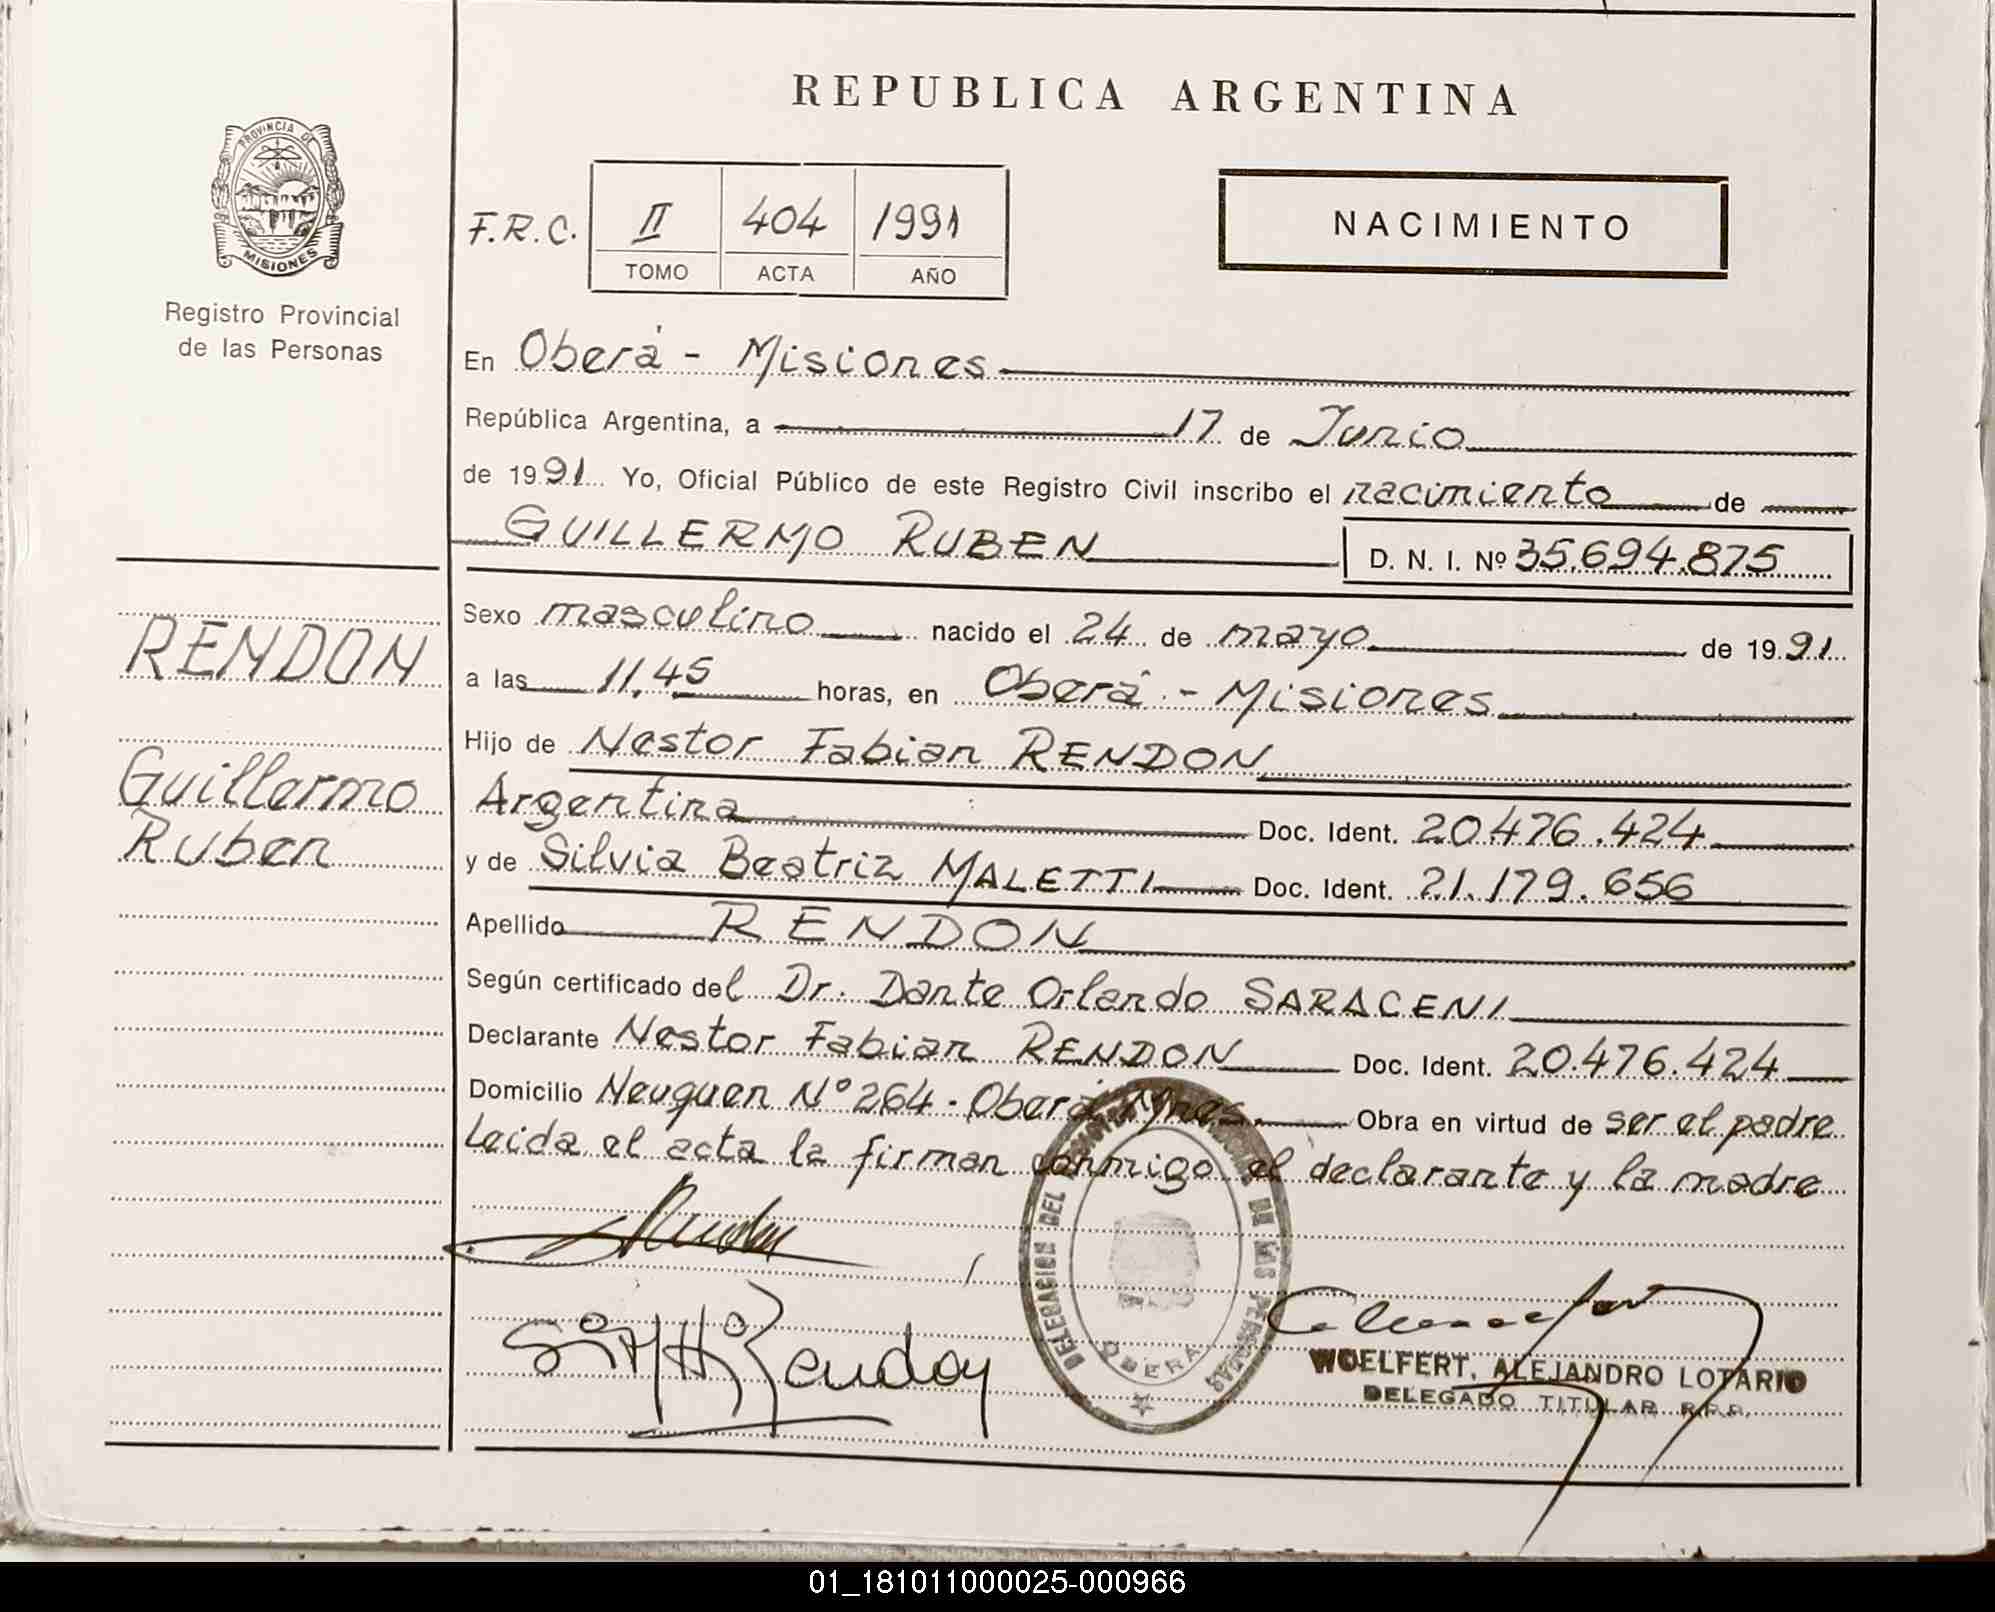 REPUBLICA ARGENTINA
PROVINCIA DE
MISIONES
Registro Provincial
de las Personas
F.R.C. II 404 1991
TOMO ACTA AÑO
NACIMIENTO
En Oberá - Misiones
República Argentina, a 17 de Junio
de 1991 Yo, Oficial Público de este Registro Civil inscribo el nacimiento de
GUILLERMO RUBEN D. N. I. Nº 35.694.875
RENDON
Guillermo
Ruben
Sexo masculino nacido el 24 de mayo de 1991
a las 11,45 horas, en Oberá - Misiones
Hijo de Nestor Fabian RENDON
Argentina Doc. Ident. 20.476.424
y de Silvia Beatriz MALETTI Doc. Ident. 21.179.656
Apellido RENDON
Según certificado del Dr. Dante Orlando SARACENI
Declarante Nestor Fabian RENDON Doc. Ident. 20.476.424
Domicilio Neuquen Nº 264 - Oberá Mnes. Obra en virtud de ser el padre
Leida el acta la firman conmigo el declarante y la madre
DELEGACION DEL REGISTRO PROVINCIAL DE LAS PERSONAS
OBERA
Rendon
WOELFERT, ALEJANDRO LOTARIO
DELEGADO TITULAR R.P.P.
01_181011000025-000966